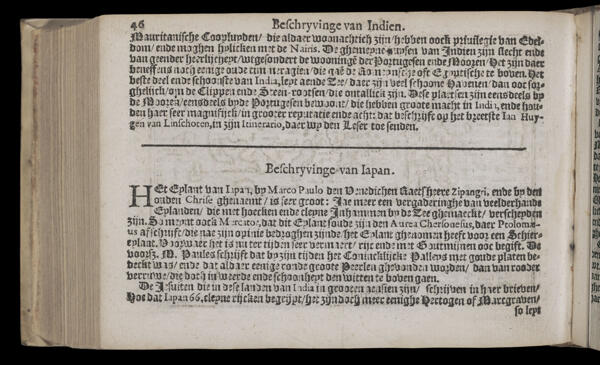 46 Beschryvinge van Indien.
Mauritanische Coopluyden / die aldaer woonachtich zijn / hebben oock privilegie van Edel-
dom / ende moghen hylicken met de Nairis. De ghemeyne huysen van Indien zijn slecht ende
van geender heerlijcheyt / uytgesondert de wooninge der Portugesen ende Mooren / Het zijn daer
beneffens noch eenige oude
beste deel ende schoonste van India, leyt aende Zee / daer zijn veel schoone Havenen / dan oock sor-
ghelijck / om de Clippen ende Steen-rootsen / die ontallick zijn. Dese plaetsen zijn eensdeels by
de Mooren / eensdeels byde Portugesen bewoont / die hebben groote macht in India, ende hou-
den haer seer magnifijck / in grooter reputatie ende acht: dat beschrijft op het breetste Ian Huy-
gen van Linschoten, in zijn Itinerario, daer wy den Leser toe senden.
Beschryvinge van Iapan.
HEt Eylant van Iapan, by Marco Paulo den Venedichen Raetsheere Zipangri, ende by den
ouden Chrise ghenaemt / is seer groot: Jae meer een vergaderinghe van veelderhande
Eylanden / die met hoecken ende cleyne Inhammen by de Zee ghemaeckt / verscheyden
zijn. So meynt oock Mercator, dat dit Eylant soude zijn den Aurea Chersonesus, daer Ptolomæ-
us af schrijft / die nae zijn opinie bedroghen zijnde / het Eylant ghenomen heeft voor een Schier-
eylant. Voorwaer het is nu ter tijden seer vermaert / rijc ende met Goutmijnen ooc begift. De
voorsz. M. Paules schrijft dat by zijn tijden het Conincklijcke Palleys met goude platen be-
deckt was / ende dat aldaer eenige ronde groote Peerlen ghevonden worden / dan van rooder
verruwe / die doch in weerde ende schoonheyt den witten te boven gaen.
De Jesuiten die in dese landen van India in grooten aensien zijn / schrijven in haer brieven /
Hoe dat Iapan 66. cleyne rijcken begrijpt / het zijn doch meer eenighe Hertogen of Marcgraven /
so leyt